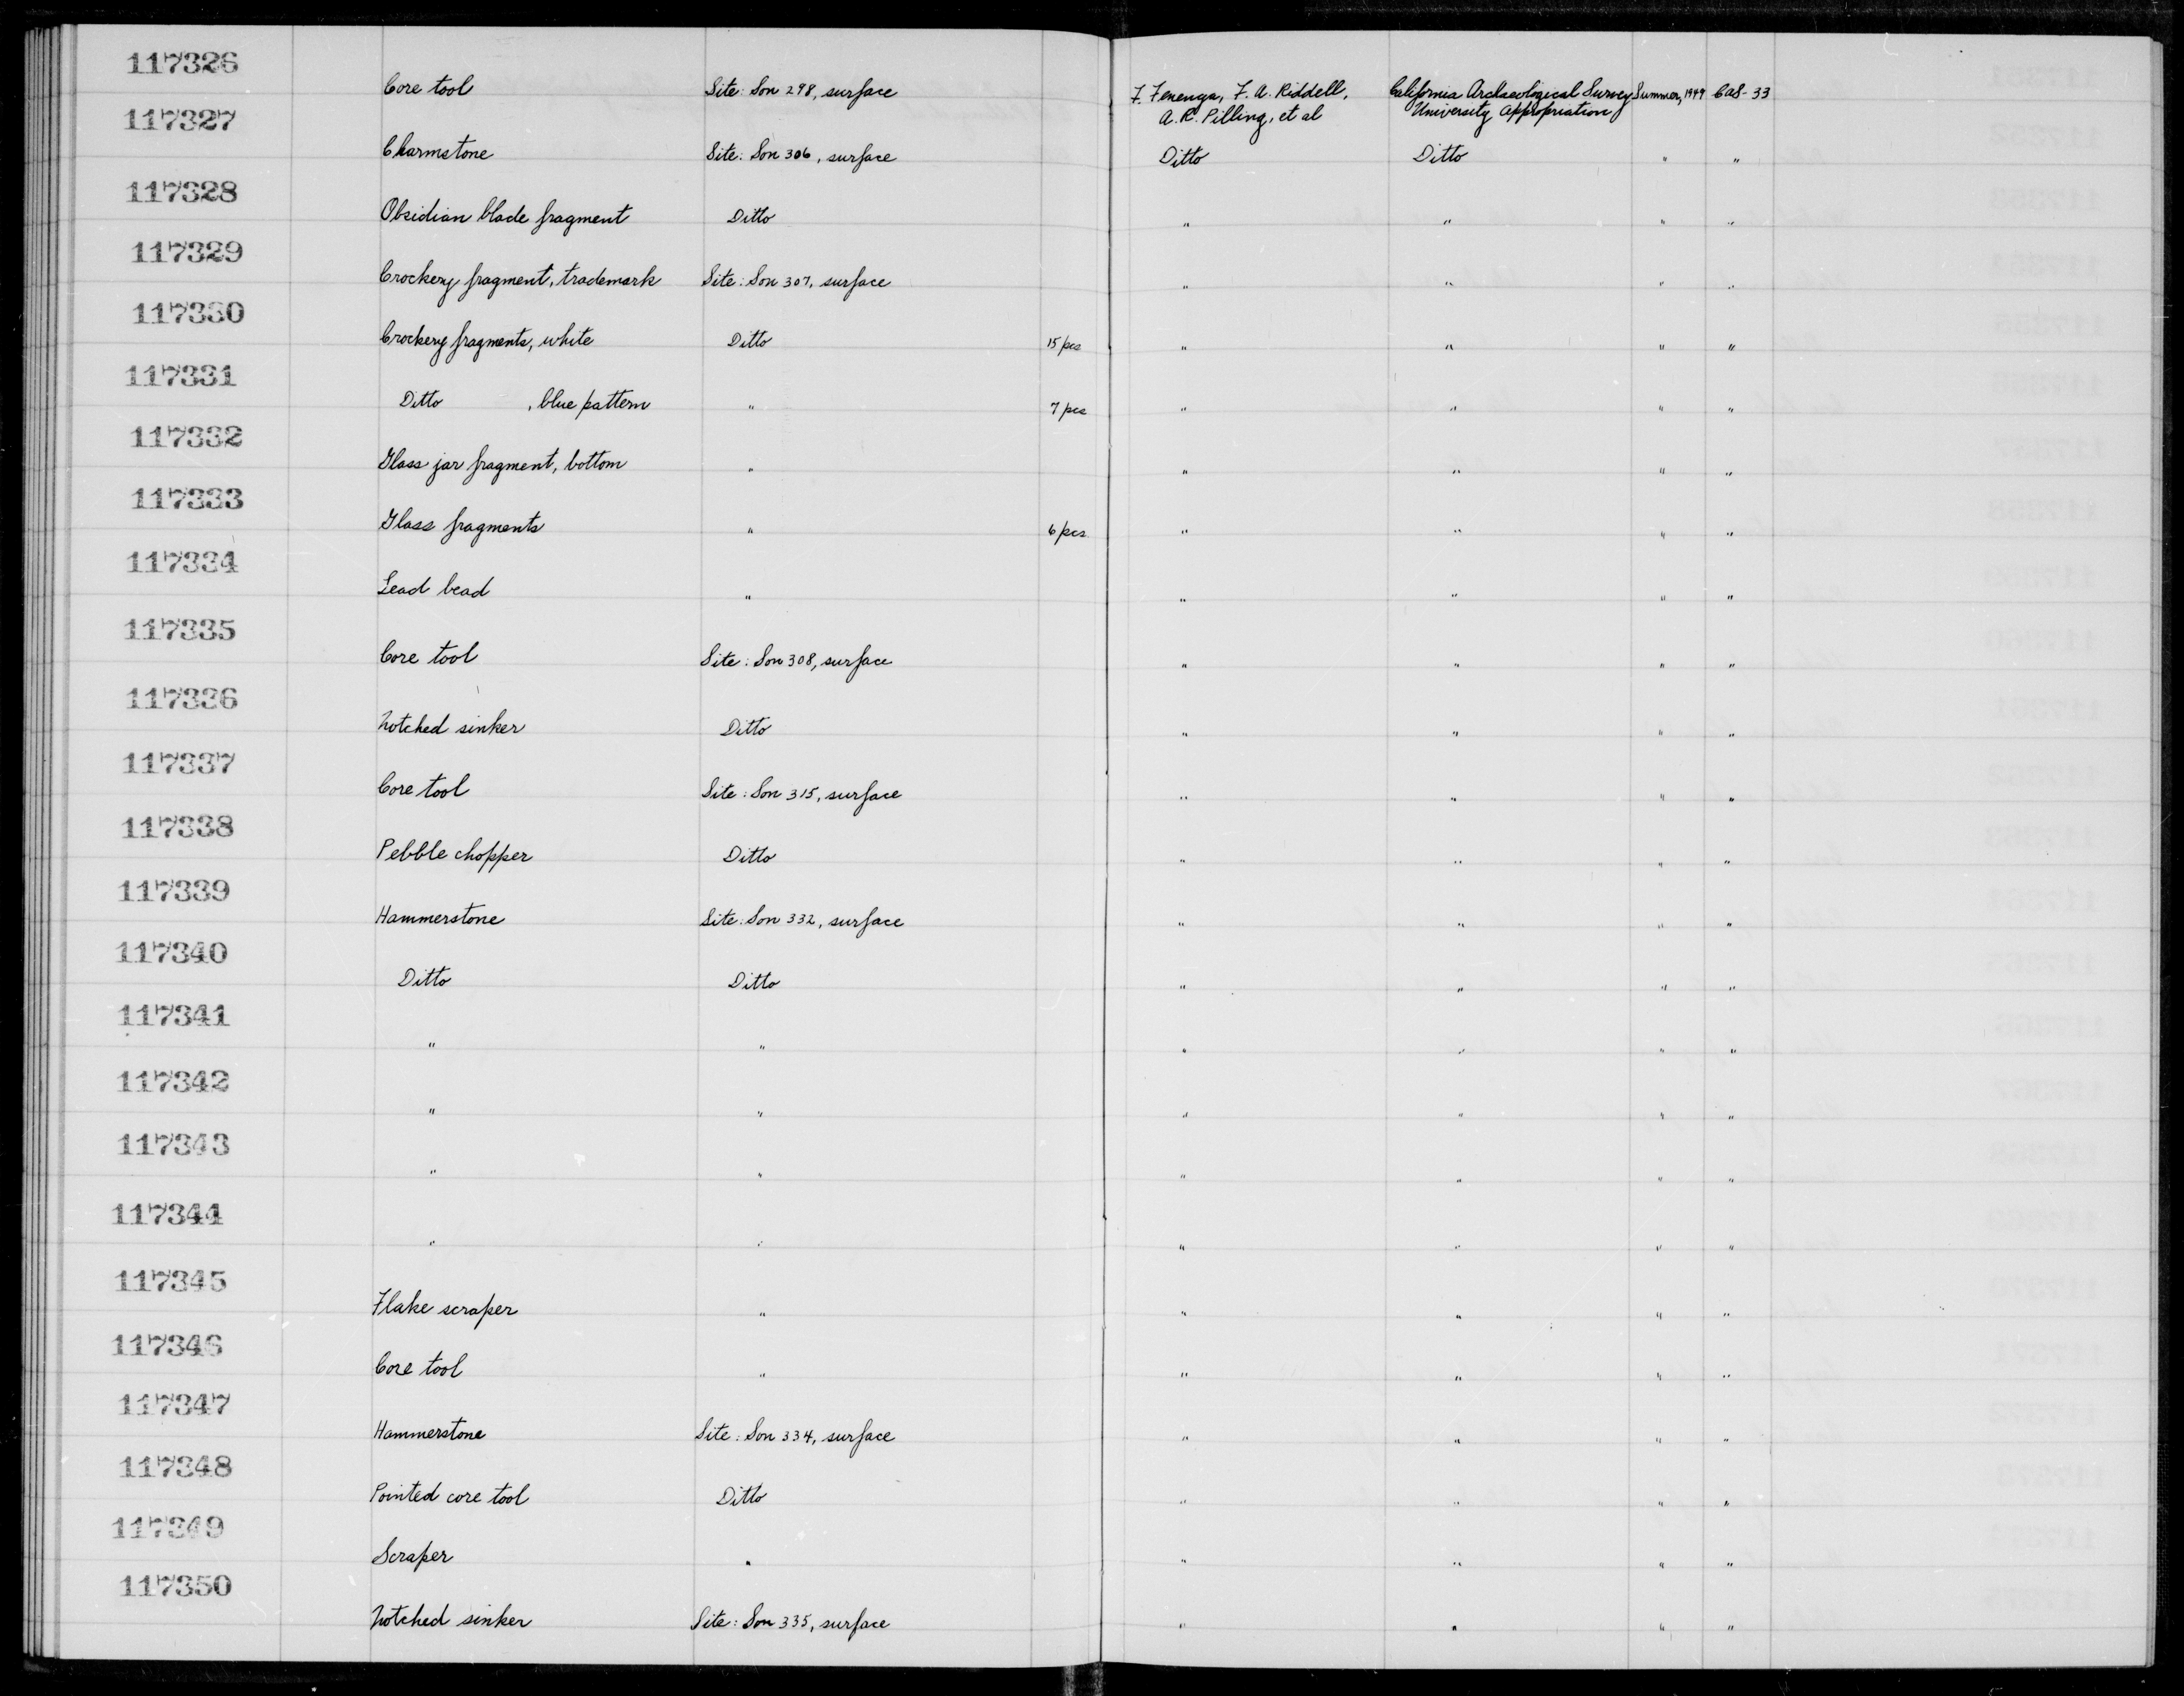 117326
Core tool Site: Son 298, surface F. Fenenga, F. A. Riddell, California Archaeological Survey Summer, 1949 CAS-33
A. R. Pilling, et al University Appropriation
117327
Charmstone Site: Son 306, surface Ditto Ditto " "
117328
Obsidian blade fragment Ditto " " " "
117329
Crockery fragment, trademark Site: Son 307, surface " " " "
117330
Crockery fragments, white Ditto 15 pcs " " " "
117331
Ditto , blue pattern " 7 pcs " " " "
117332
Glass jar fragment, bottom " " " " "
117333
Glass fragments " 6 pcs " " " "
117334
Lead bead " " " " "
117335
Core tool Site: Son 308, surface " " " "
117336
Notched sinker Ditto " " " "
117337
Core tool Site: Son 315, surface " " " "
117338
Pebble chopper Ditto " " " "
117339
Hammerstone Site: Son 332, surface " " " "
117340
Ditto Ditto " " " "
117341
" " " " " "
117342
" " " " " "
117343
" " " " " "
117344
" " " " " "
117345
Flake scraper " " " " "
117346
Core tool " " " " "
117347
Hammerstone Site: Son 334, surface " " " "
117348
Pointed core tool Ditto " " " "
117349
Scraper " " " " "
117350
Notched sinker Site: Son 335, surface " " " "